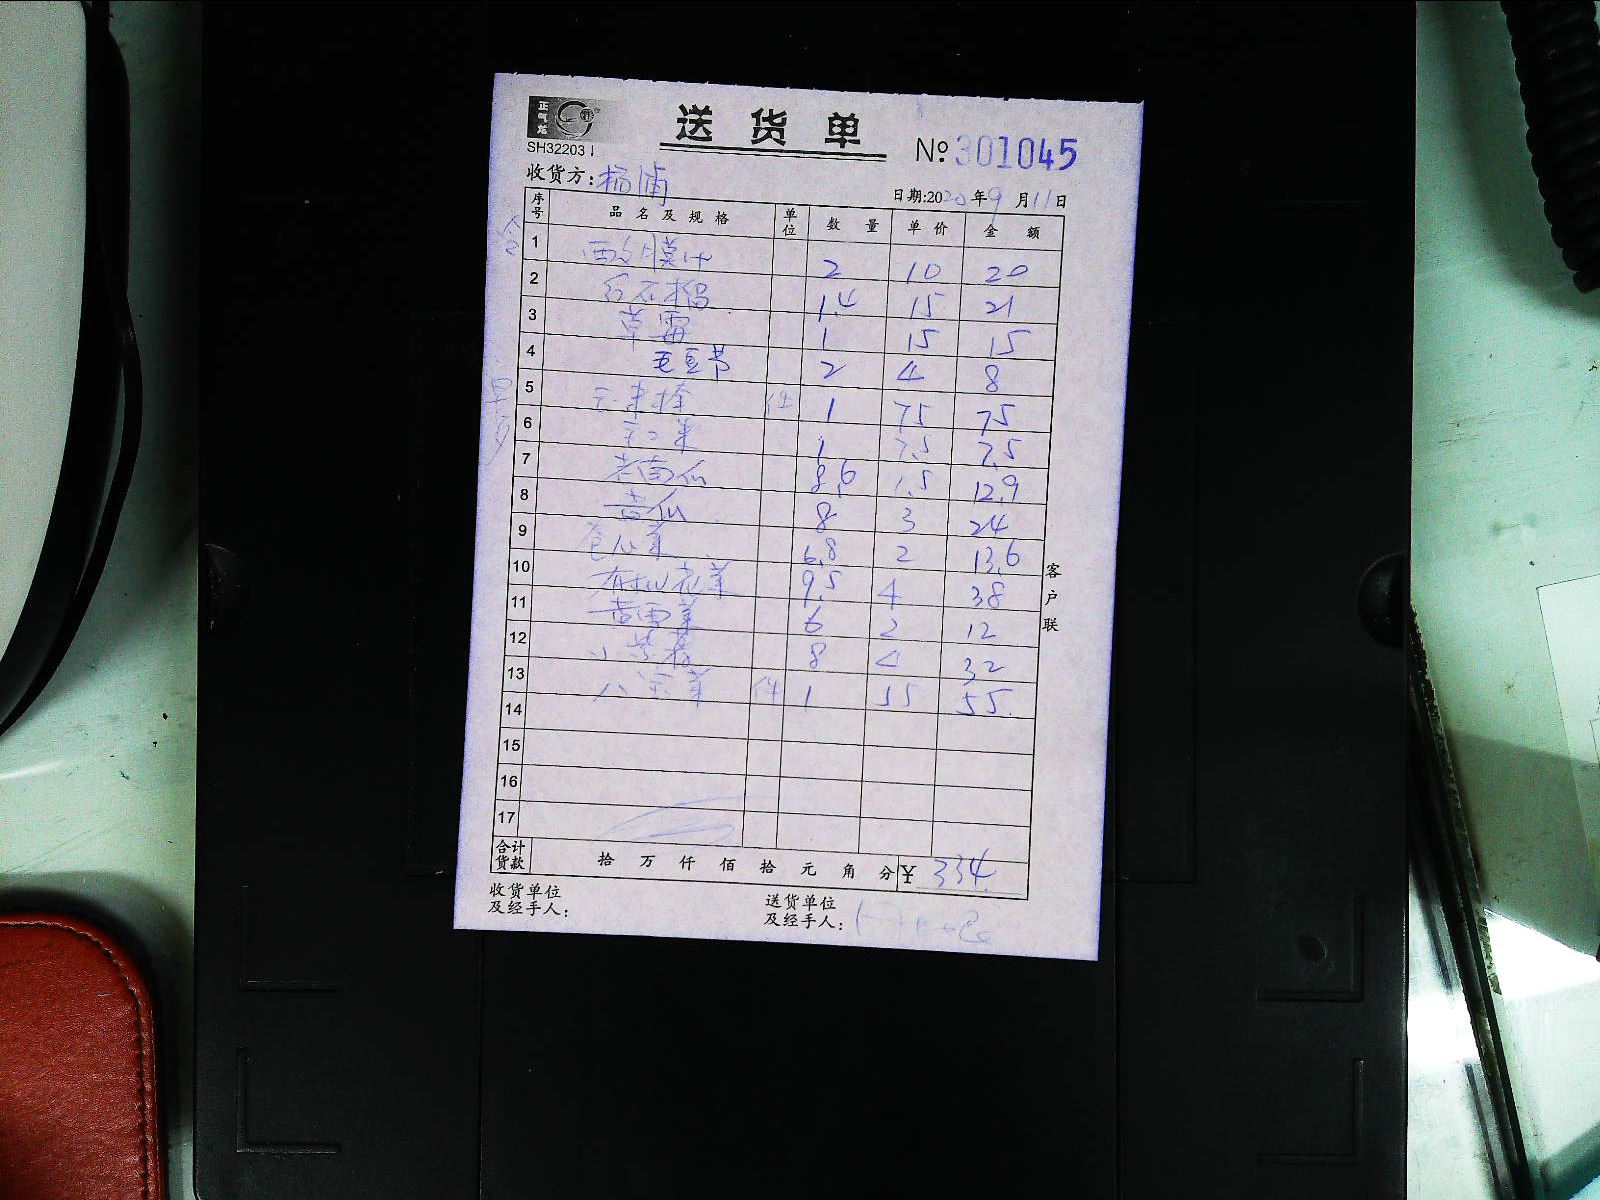 正气炉
SH32203
送货单
№301045
收货方:杨浦
日期:2020年9月11日
序号 品名及规格 单位 数量 单价 金额
1 2 10 20
2 红石榴 1.4 15 21
3 草莓 1 15 15
4 毛豆节 2 4 8
5 件 1 75 75
6 1 7.5 7.5
7 老南瓜 8.6 1.5 12.9
8 苦瓜 8 3 24
9 卷心菜 6.8 2 13.6
10 有机花菜 9.5 4 38
11 6 2 12
12 8 4 32
13 件 1 55 55
14
15
16
17
合计货款 拾万仟佰拾元角分 ¥ 334
收货单位及经手人:
送货单位及经手人:
客户联